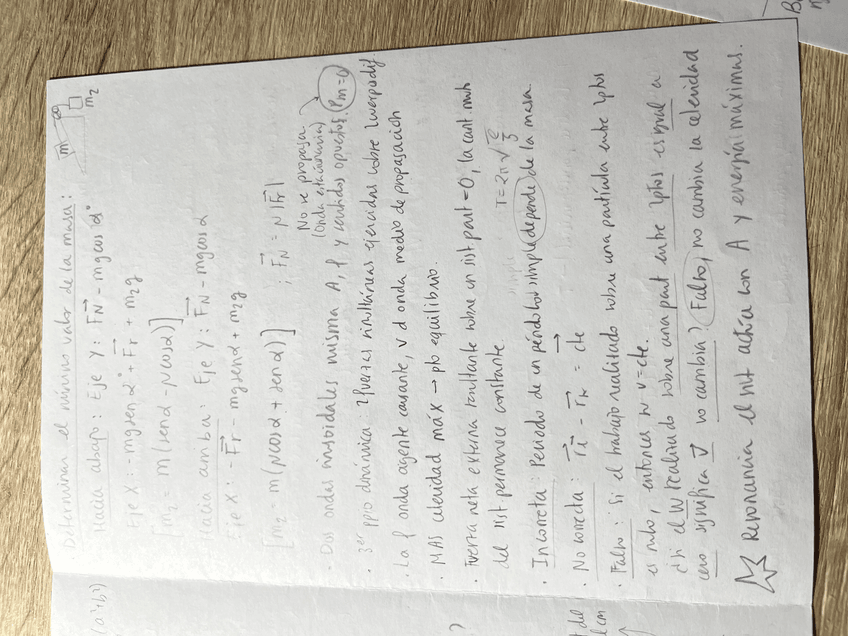 · Determinar el mínimo valor de la masa:
m
m2
- Hacia abajo: Eje Y: FN - mg cos α
Eje X: -mg sen α + Fr + m2g
[m2 = m(sen α - N cos α)]
Hacia arriba: Eje Y: FN - mg cos α
Eje X: -Fr - mg sen α + m2g
[m2 = m(N cos α + sen α)] ; FN = N|Fr|
No se propaga
(onda estacionaria)
· Dos ondas misma A, f y sentidos opuestos. (Pm=0)
· 3er ppio dinámica: 2 fuerzas simultáneas ejercidas sobre cuerpos dif.
· La f onda agente causante, v d onda medio de propagación
· MAS celeridad máx → pto equilibrio.
· Fuerza neta externa resultante sobre un sist part = 0, la cant mvto
del sist permanece constante.
T = 2π√
· Incorrecta: Periodo de un péndulo simple depende de la masa.
· No correcta: = cte
· Falso: Si el trabajo realizado sobre una partícula entre 2ptos
es nulo, entonces su v=cte.
el W realizado sobre una part entre 2ptos es igual a
cero significa v no cambia? Falso, no cambia la celeridad
Resonancia el sist actúa con A y energía máximas.
(a²+b²)
?